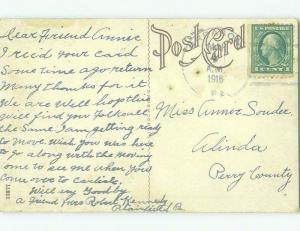 Post Card
Dear Friend Annie
I recd your card
Some time ago return
Many thanks for it
We are Well hope this
Will find you Folks all
the Same I am getting ready
to Move Wish you was here
to go along with the Moving
Come to see me When you
Come over to Carlisle.
Will say Good by
a Friend Mrs Robert Kennedy
Plainfield Pa
1916
1 CENT 1
Miss Annie Souder
Alinda
Perry County